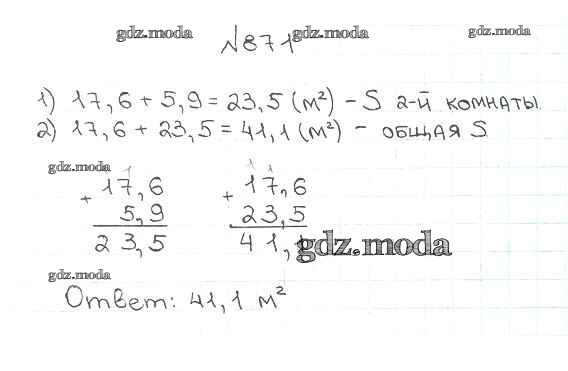 gdz.moda gdz.moda gdz.moda
№871
1) 17,6 + 5,9 = 23,5 (м²) - S 2-й комнаты.
2) 17,6 + 23,5 = 41,1 (м²) - общая S
gdz.moda 1 1 1
+ 17,6 + 17,6
5,9 23,5
23,5 41,1 gdz.moda
gdz.moda
Ответ: 41,1 м²